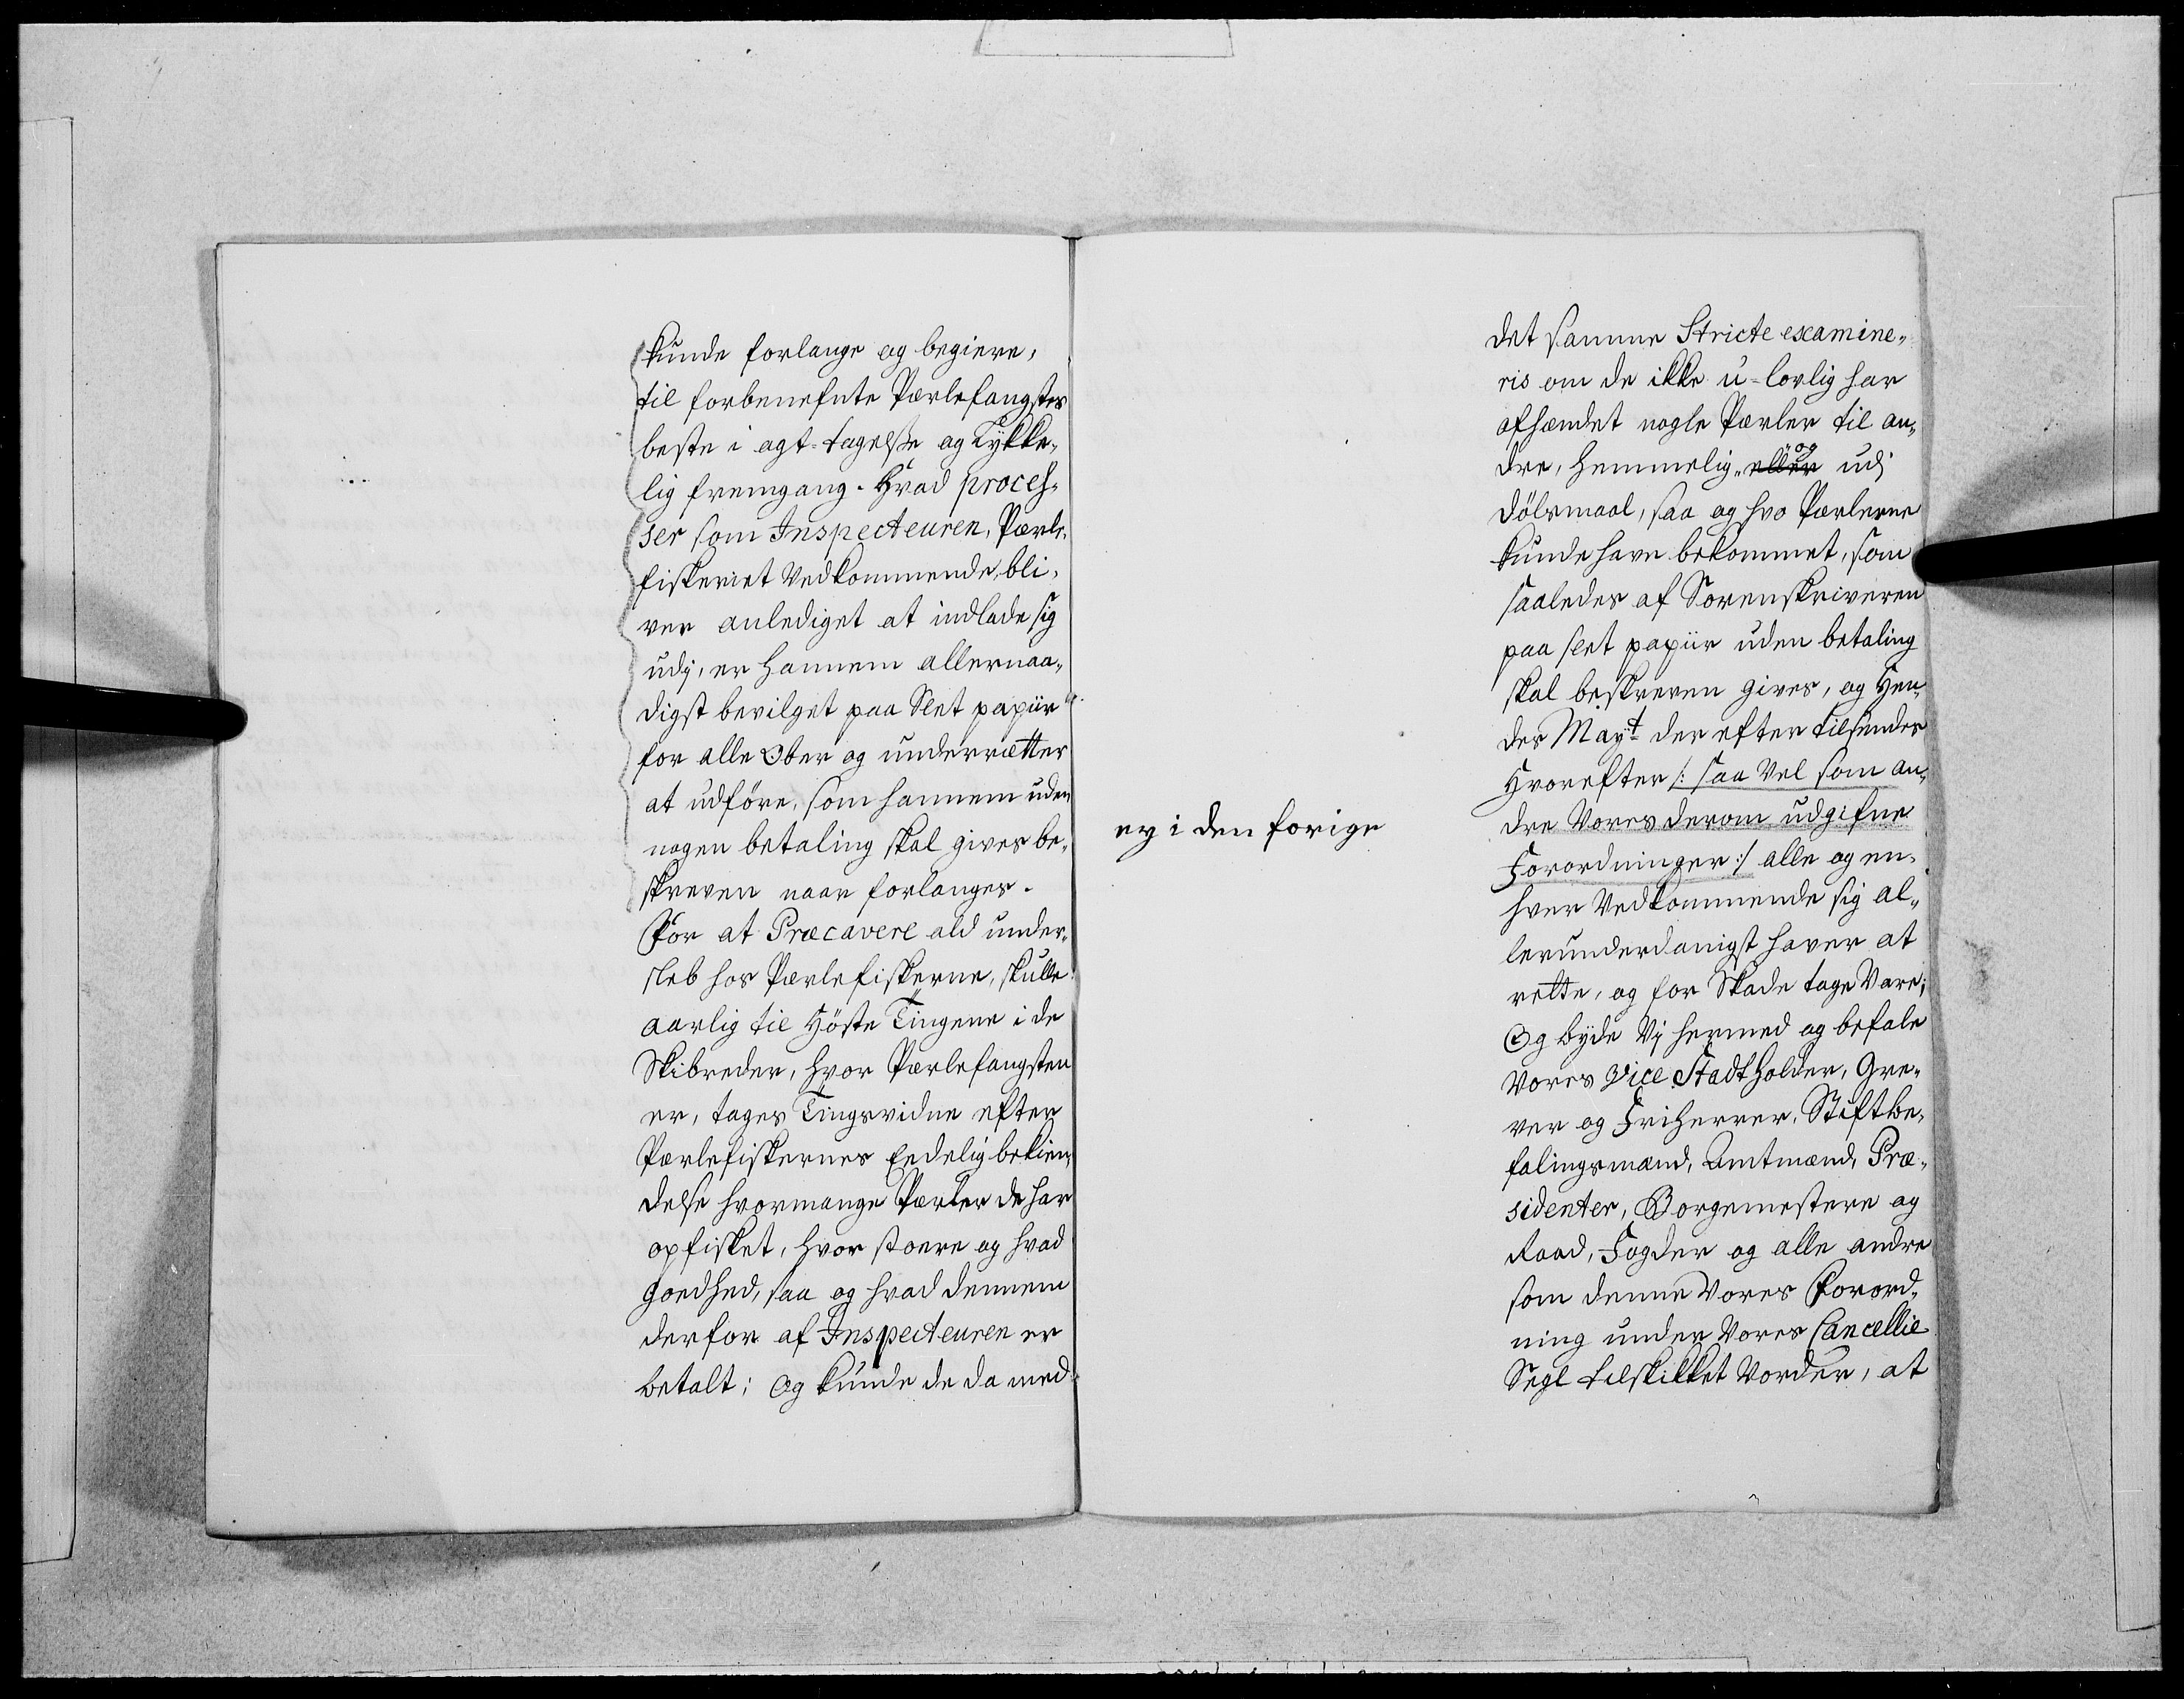 kunde forlange og begiere,
til forbenefnte Pærlefangstes
beste i agt-tagelsse og Lykke„
lig fremgang. Hvad proces„
ser som Inspecteuren, Pærle„
fiskeriet Vedkommende, bli„
ver anlediget at indlade sig
udj, er hannem allernaa„
digst bevilget paa Slet papiir
for alle Ober og underrætter
at udføre, som hannem uden
nogen betaling skal gives be„
skreven naar forlanges.
For at Præcavere ald under„
sleb hos Pærlefiskerne, skulle
aarlig til Høste Tingene i de
Skibreder, hvor Pærlefangsten
er, tages Tingsvidne efter
Pærlefiskernes Eedelig bekien„
delse hvormange Pærler de har
opfisket, hvor stoere og hvad
goedhed, saa og hvad dennem
derfor af Inspecteuren er
betalt; og kunde de da med
ey i den forige
det samme Stricte examine„
ris om de ikke u-lovlig har
afhændet nogle Pærler til an„
dre, hemmelig eller og udj
dølsmaal, saa og hvo Pærlerne
kunde have bekommet, som
saaledes af Sorenskriveren
paa slet papiir uden betaling
skal beskreven gives, og Hen„
des Mayt der efter tilsendes
Hvorefter /: saa Vel som an„
dre Vores derom udgifne
Forordninger :/ alle og en„
hver Vedkommende sig al„
lerunderdanigst haver at
rette, og for Skade tage Vare;
Og byde Vj hermed og befale
Vores Vice Stadtholder, Gre„
ver og Friherrer, Stiftbe„
falingsmænd, Amtmænd, Præ„
sidenter, Borgemestere og
Raad, Fogder og alle andre
som denne Vores Forord„
ning under Vores Cancellie
Segl tilskikket Vorder, at